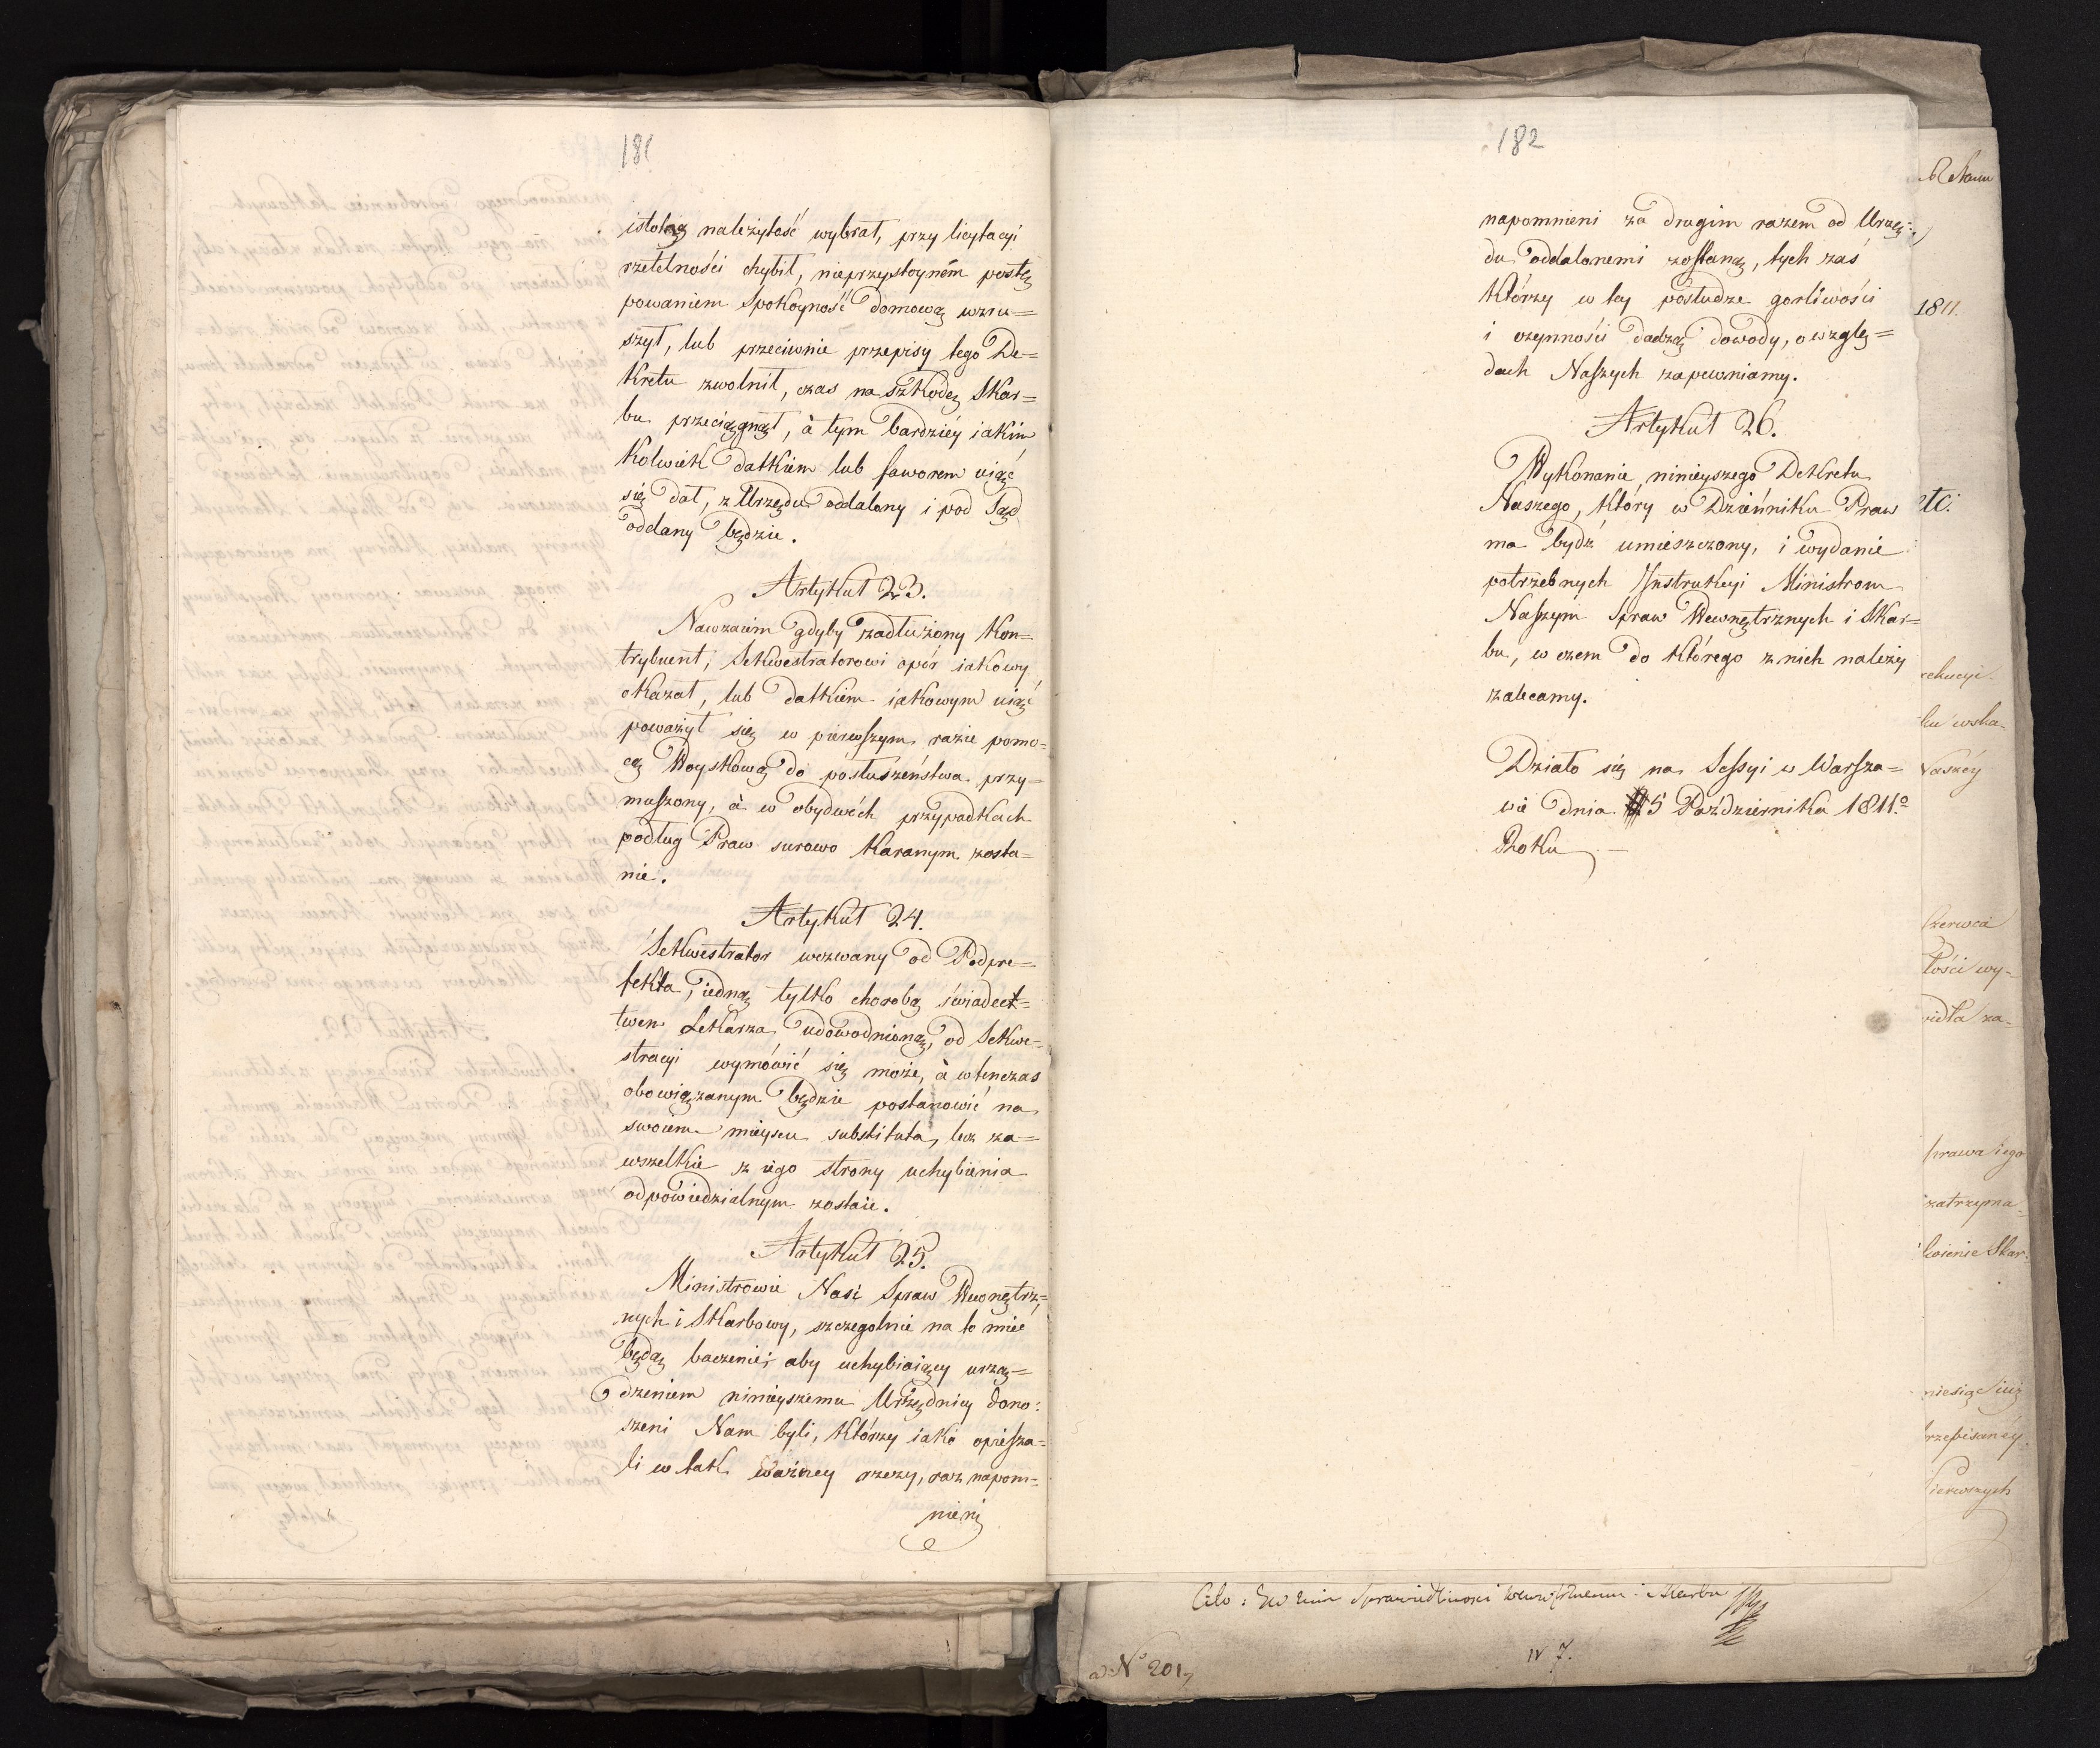 181
istotną należytość wybrał, przy licytacyi
rzetelności chybił, nieprzystoyném postę
powaniem spokoyność domową wzru=
szył, lub przeciwnie przepisy tego De=
kretu zwolnił, czas na szkodę Skar=
bu przeciągnął, à tym bardziéy iakim
kolwiek datkiem lub faworem uiąć
się dał, z Urzędu oddalony i pod Sąd
oddany będzie.
Artykuł 23.
Nawzaiem gdyby zadłużony Kon=
trybuent, Sekwestratorowi opór iakowy
okazał, lub datkiem iakowym uiąć
poważył się w pierwszym razie pomo=
cą Woyskową do posłuszeństwa przy=
muszony, à w obydwóch przypadkach
podług Praw surowo karanym zosta=
nie.
Artykuł 24.
Sekwestrator wezwany od Podpre=
fekta, iedną tylko chorobą świadect=
twem Lekarza udowodnioną, od Sekwe=
stracyi wymówić się może, à wtenczas
obowiązanym będzie postanowić na
swoiem mieyscu substituta, lecz za=
wszelkie z iego strony uchybienia
odpowiedzialnym zostaie.
Artykuł 25.
Ministrowie Nasi Spraw Wewnętrz=
nych i Skarbowy, szczegolnie na to mieć
będą baczenie, aby uchybiaiący urzą=
dzeniem ninieyszemu Urzędnicy dono:
szeni Nam byli, którzy iako opiesza=
li w tak ważney rzeczy, raz napom=
nieni
182
napomnieni za drugim razem od Urzę=
du oddalonemi zostaną, tych zaś
którzy w tey posłudze gorliwości
i czynności dadzą dowody, o wzglę=
dach Naszych zapewniamy.
Artykuł 26.
Wykonanie ninieyszego Dekretu
Naszego, który w Dzienniku Praw
ma bydź umieszczony, i wydanie
potrzebnych Instrukcyi Ministrom
Naszym Spraw Wewnętrznych i Skar=
bu, w czem do którego z nich należy
zalecamy.
Działo się na Sessyi w Warsza=
wie dnia 5 Października 1811º
Roku
1811.
etc.
ku wska=
Naszéy
czerwca
łości wy=
idła za=
prawa iego
zatrzyma=
wienie Skar:
niesiąc iuż
rzepisanéy
Pierwszych
Sprawiedliwości i Skarbu
N 7.
ad Nº 201